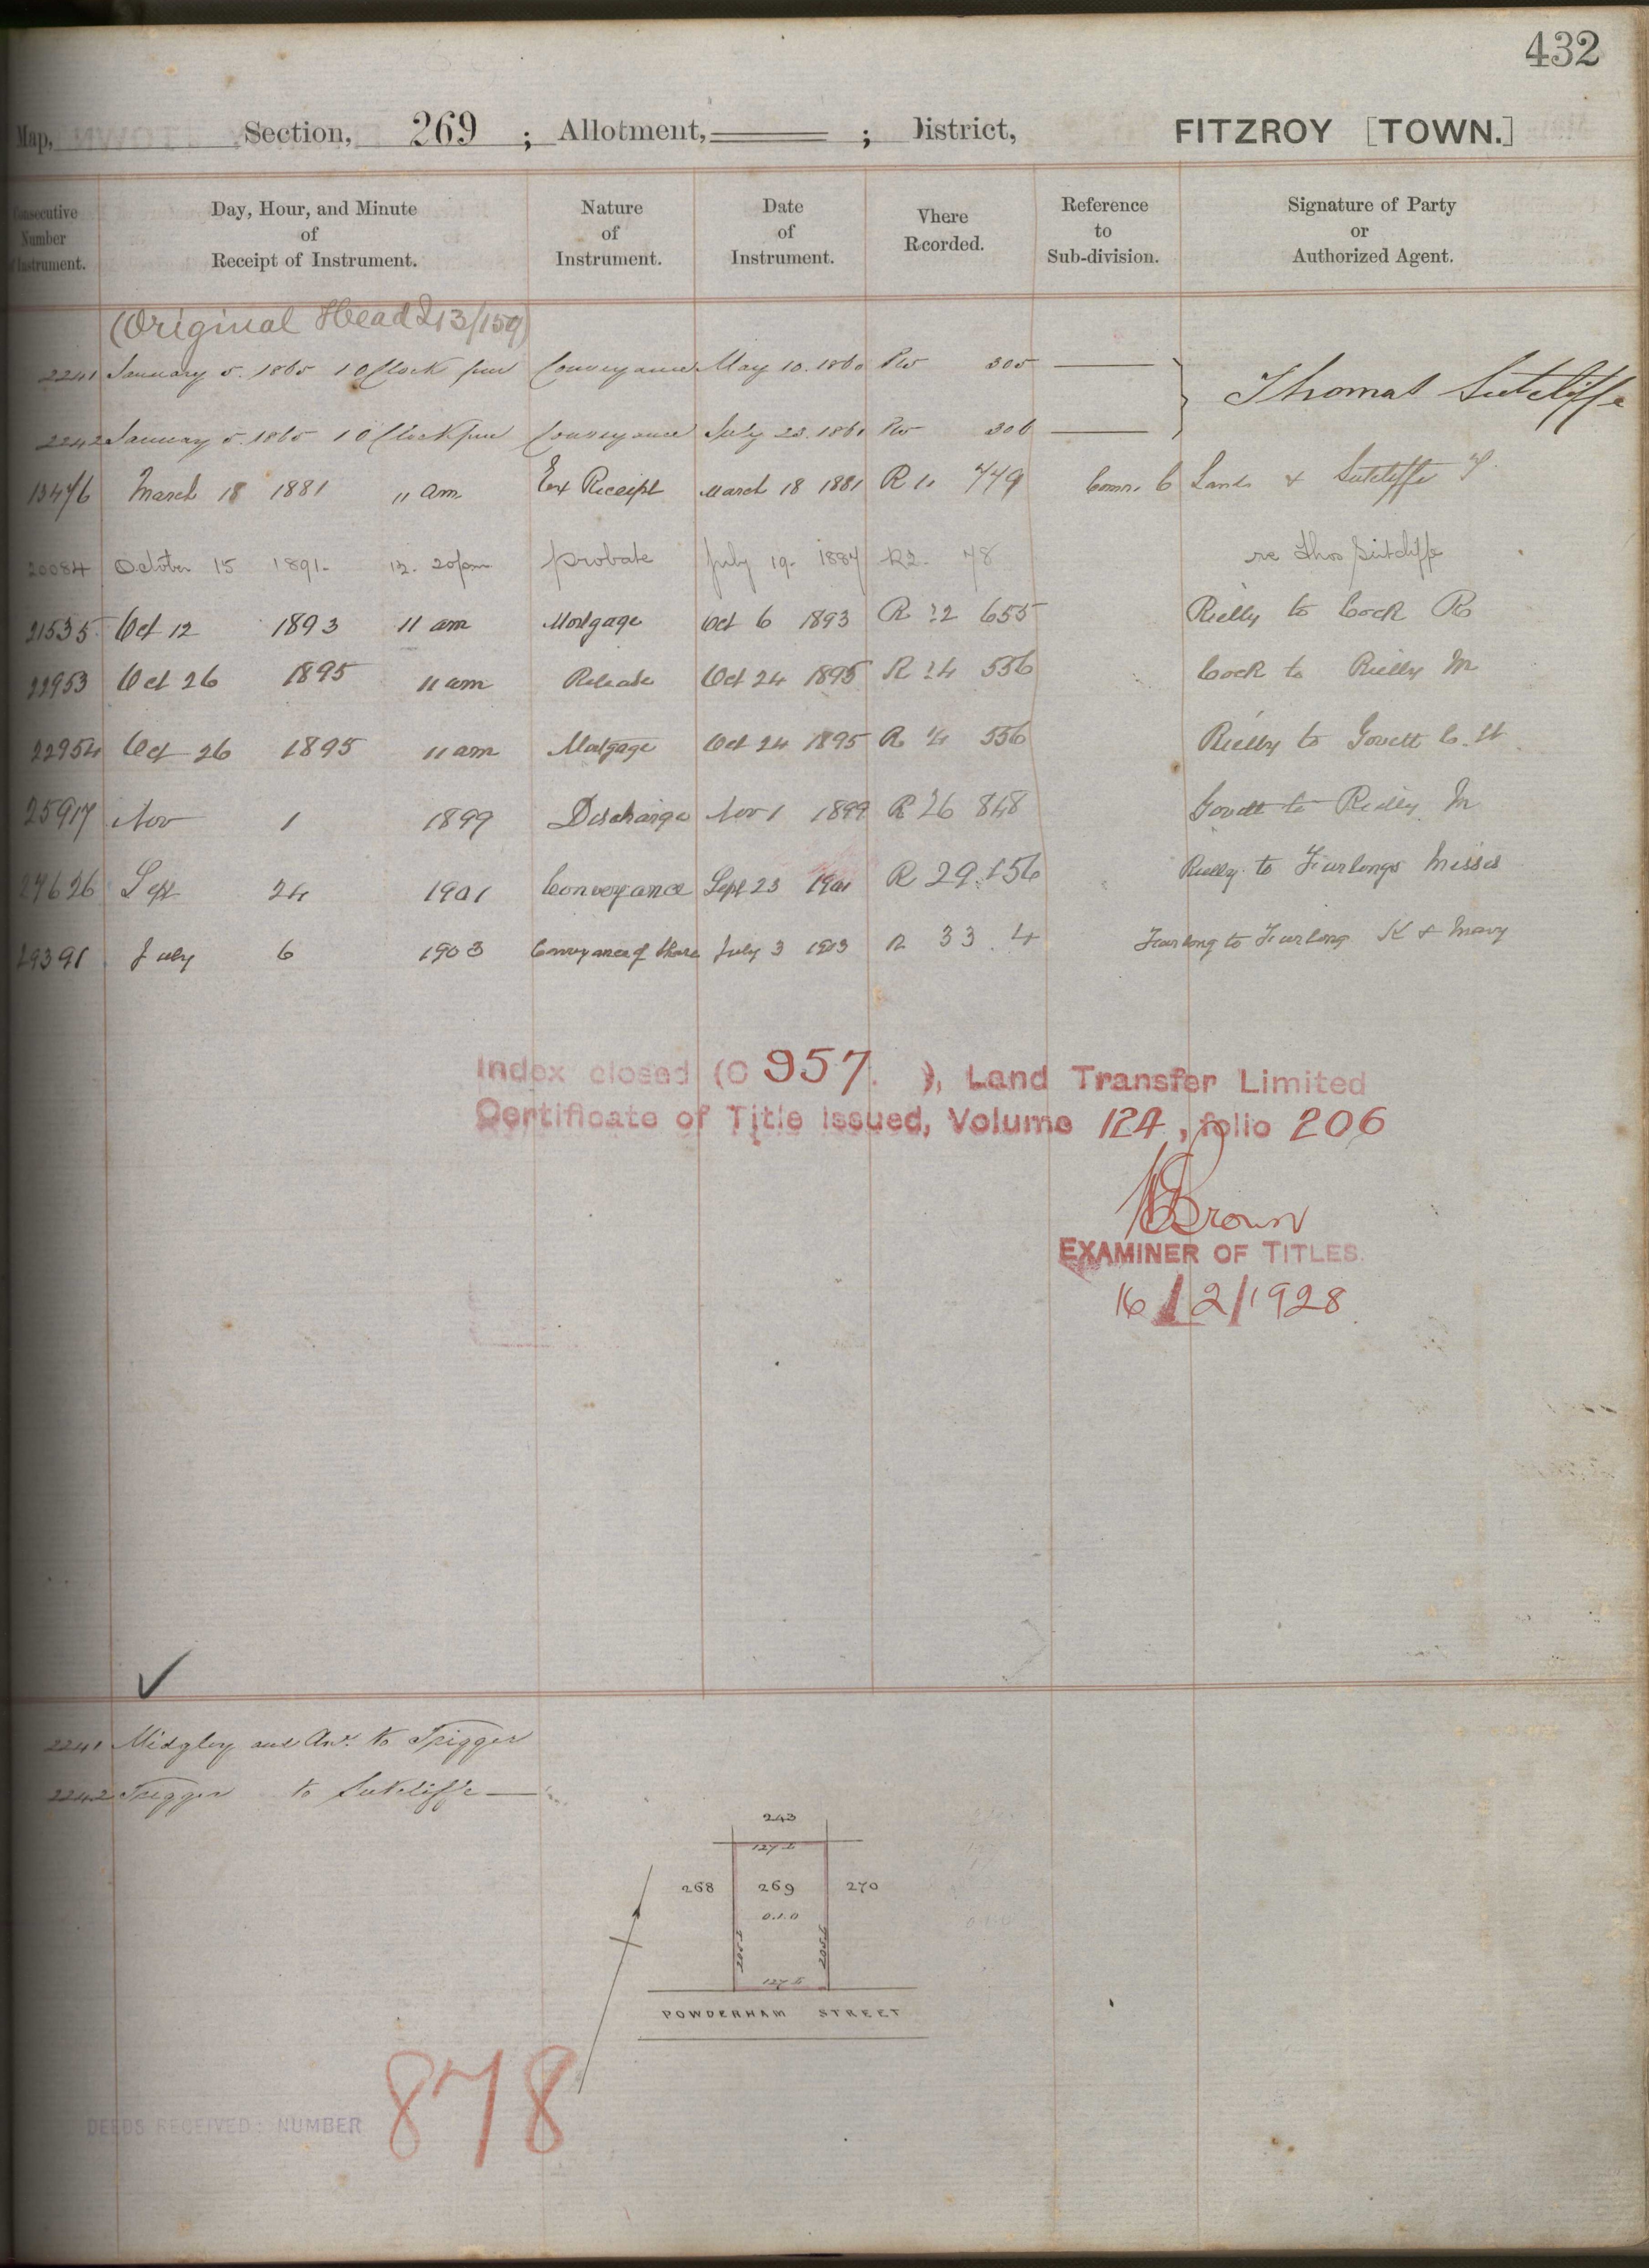 432
Map, Section, 269 ; Allotment, ; District, FITZROY [TOWN.]
Consecutive Number of Instrument. Day, Hour, and Minute of Receipt of Instrument. Nature of Instrument. Date of Instrument. Where Recorded. Reference to Sub-division. Signature of Party or Authorized Agent.
(Original Head 213/159)
2241 January 5. 1865 1 O'Clock Conveyance May 10. 1860 305 Thomas Sutcliffe
2242 January 5. 1865 1 O'Clock Conveyance July 23. 1861 306
13476 March 18 1881 11 am Receipt March 18 1881 R 11 449 Comr. C. Lands & Sutcliffe T.
20084 October 15 1891. 12. 20 pm probate July 19. 1887 R2. 78 re Thos Sutcliffe
21535 Oct 12 1893 11 am Mortgage Oct 6 1893 R 22 655 Rielly to Cock R
22953 Oct 26 1895 11 am Release Oct 24 1895 R 24 556 Cock to Rielly M
22954 Oct 26 1895 11 am Mortgage Oct 24 1895 R 24 556 Rielly to Govett C. H
25917 Nov 1 1899 Discharge Nov 1 1899 R 26 848 Govett to Rielly M
27626 Sept 24 1901 Conveyance Sept 23 1901 R 29. 156 Rielly to Furlongs Misses
29391 July 6 1903 Conveyance of Share July 3 1903 R 33. 4 Furlong to Furlong K & Mary
Index closed (C 957. ), Land Transfer Limited
Certificate of Title Issued, Volume 124, folio 206
Brown
EXAMINER OF TITLES.
16/2/1928
2241 Midgley and Anr. to Trigger
2242 Trigger to Sutcliffe
243
127 L
268 269 270
0.1.0
205 L 205 L
127 L
POWDERHAM STREET
DEEDS RECEIVED: NUMBER 878